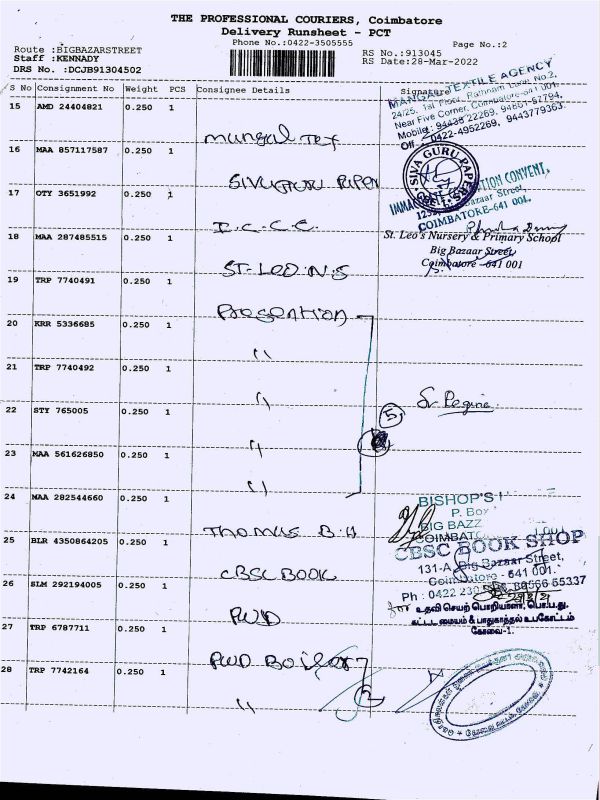 THE PROFESSIONAL COURIERS, Coimbatore
Delivery Runsheet - PCT
Phone No.:0422-3505555
Page No.:2
Route :BIGBAZARSTREET
Staff :KENNADY
DRS No. :DCJB91304502
RS No.:913045
RS Date:28-Mar-2022
S No Consignment No Weight PCS Consignee Details Signature
MANGAL TEXTILE AGENCY
24/25, 1st Floor,
Near Five Corner, Coimbatore-641 001.
Mobile: 94433 22269,
Off : 0422-4952269, 9443779363.
15 AMD 24404821 0.250 1 Mungal Tex
16 MAA 857117587 0.250 1
SIVA GURU PAPERS
17 OTY 3651992 0.250 1 I.C.C.C
CONVENT,
Bazaar Street,
COIMBATORE-641 001.
18 MAA 287485515 0.250 1 ST-LEO.N.S
St. Leo's Nursery & Primary School
Big Bazaar Street
Coimbatore -641 001
19 TRP 7740491 0.250 1 Presention
20 KRR 5336685 0.250 1 "
21 TRP 7740492 0.250 1 "
22 STY 765005 0.250 1 "
5
Sr Regina
23 MAA 561626850 0.250 1 "
24 MAA 282544660 0.250 1 Thomas B.H
BISHOP'S
P. Box
BIG BAZZ
COIMBAT
25 BLR 4350864205 0.250 1 CBSC BOOK
CBSC BOOK SHOP
131-A, Big Bazaar Street,
Coimbatore - 641 001.
Ph : 0422 230
26 SLM 292194005 0.250 1 PWD
for உதவி செயற் பொறியாளர், பொ.ப.து.
கட்டட மையம் & பாதுகாத்தல் உபகோட்டம்
கோவை-1.
27 TRP 6787711 0.250 1 PWD Boiler
28 TRP 7742164 0.250 1 "
2